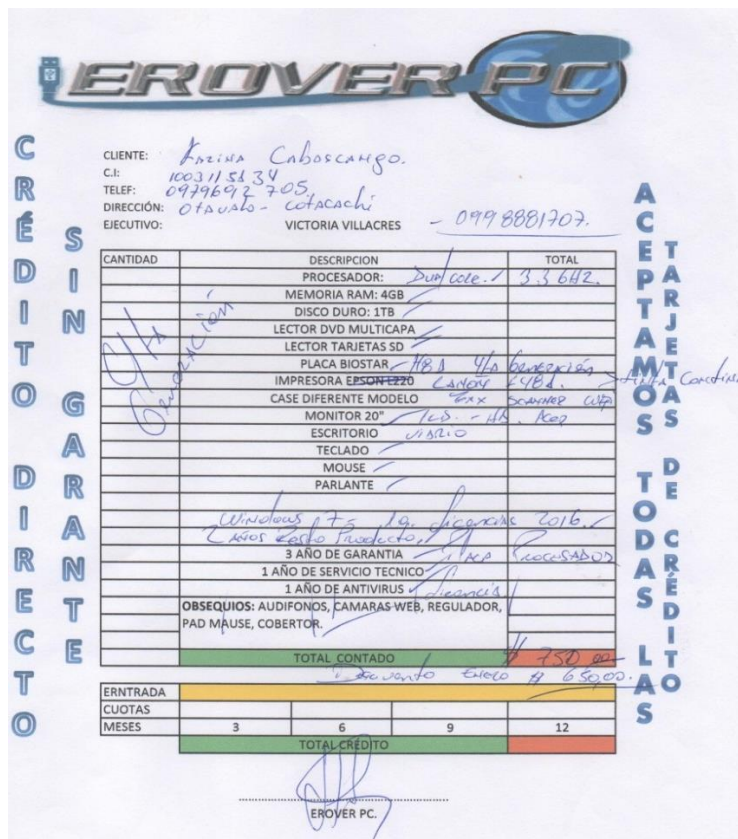 EROVER PC
CRÉDITO DIRECTO
SIN GARANTE
CLIENTE: Karina Cabascango.
C.I: 1003115834
TELEF: 0979692705
DIRECCIÓN: Otavalo - Cotacachi
EJECUTIVO: VICTORIA VILLACRES - 0998881707.
CANTIDAD DESCRIPCION TOTAL
PROCESADOR: Dual core. 3.3 GHZ.
MEMORIA RAM: 4GB
DISCO DURO: 1TB
LECTOR DVD MULTICAPA
LECTOR TARJETAS SD
PLACA BIOSTAR H81 4/ta generación
IMPRESORA EPSON L220 CANON > tinta Continua
CASE DIFERENTE MODELO scanner
MONITOR 20" - HD. Acer
ESCRITORIO vidrio
TECLADO
MOUSE
PARLANTE
4/ta Generación
Windows 7 licencias 2016.
2 Años Resto Producto.
3 AÑO DE GARANTIA Procesador
1 AÑO DE SERVICIO TECNICO
1 AÑO DE ANTIVIRUS licencia
OBSEQUIOS: AUDIFONOS, CAMARAS WEB, REGULADOR,
PAD MAUSE, COBERTOR.
TOTAL CONTADO $ 750,00
Descuento Enero $ 650,00.
ERNTRADA
CUOTAS
MESES 3 6 9 12
TOTAL CRÉDITO
EROVER PC.
ACEPTAMOS TODAS LAS
TARJETAS DE CRÉDITO